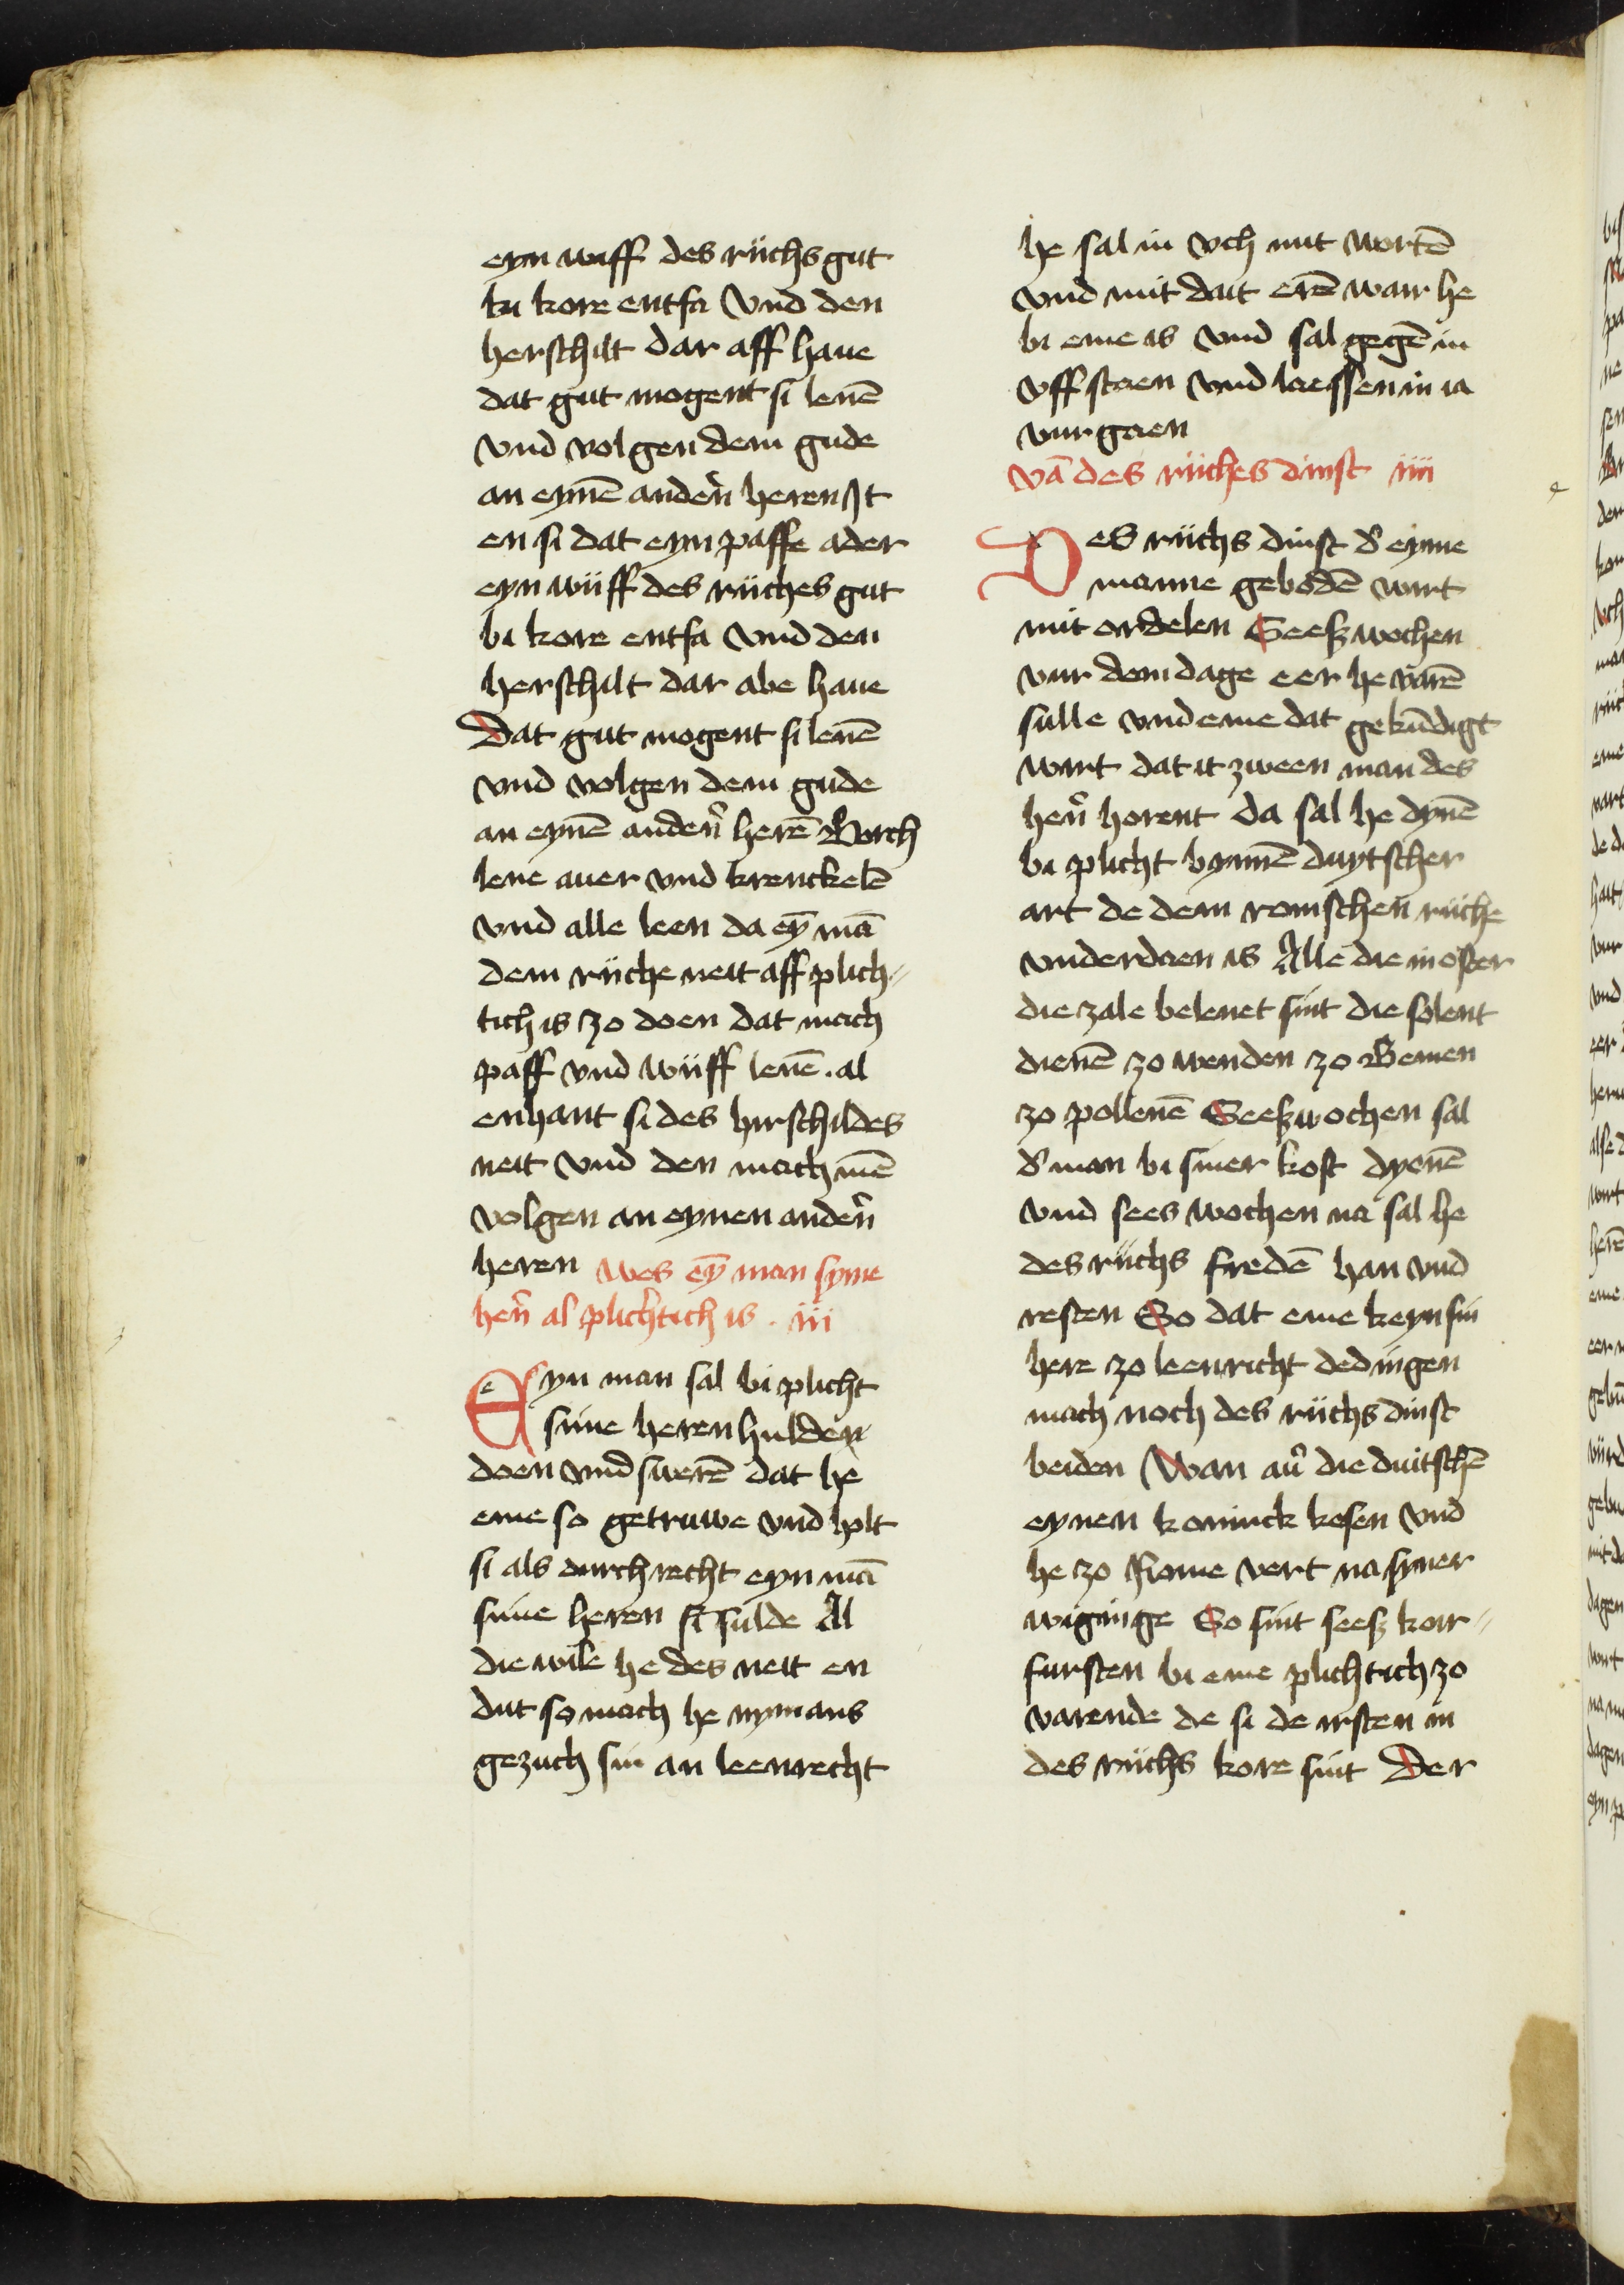 eyn wiff des rüchs gut
bi kore entfa vnd den
herschilt dar aff haue
dat gut mogent si lenē
vnd volgen dem gude
an eynē anderñ heren It
en si dat eyn paffe ader
eyn wüff des rüches gut
bi kore entfa vnd den
herschilt dar abe haue
Dat gut mogent si lenē
vnd volgen dem gude
an eynē anderñ herē Borch
lene auer vnd krenckelē
vnd alle leen da eȳ mā
dem rüche neit aff plich〃
tich is zo doen dat mach
paff vnd wüff lenē. al
enhant si des hirschildes
neit vnd den mach mē
volgen an eynen anderñ
heren wes eȳ man syme
herñ al plichtich is . iij
Eyn man sal bi plicht
sime heren hulden
doen vnd swerē dat he
eme so getruwe vnd holt
si als durch recht eyn mā
sime heren si sulde Al
die wile he des neit en
dut so mach he nymans
gezuch sin an leenrecht
he sal in vch mit wortē
vnd mit dait erē wair he
bi eme is vnd sal gegē in
vff staen vnd laessen in ia
vur gaen
vā des rüches dinst iiij
Des rüchs dinst d' eyme
manne gebodē wirt
mit ordelen Seesz wochen
vur dem dage eer he varē
sulle vnd eme dat gekūdigt
wirt dat it zween man des
herñ horent da sal he dynē
bi plicht bynnē duytscher
art de dem romschen rüche
vnderdaen is Alle die in oster
die zale belenet sint die solent
dienē zo wenden zo Bemen
zo pollenē Seesz wochen sal
d' man bi siner kost dyenē
vnd sees wochen na sal he
des rüchs fredē han vnd
resten So dat eme keyn sin
here zo leenricht dedingen
mach noch des rüchs dinst
beiden Wan au' die duitschē
eynen koninck kesen vnd
he zo Rome vert na syner
wiginge So sint seesz kur〃
fursten bi eme plichtich zo
varende de si de irsten in
des rüchs kore sint Der